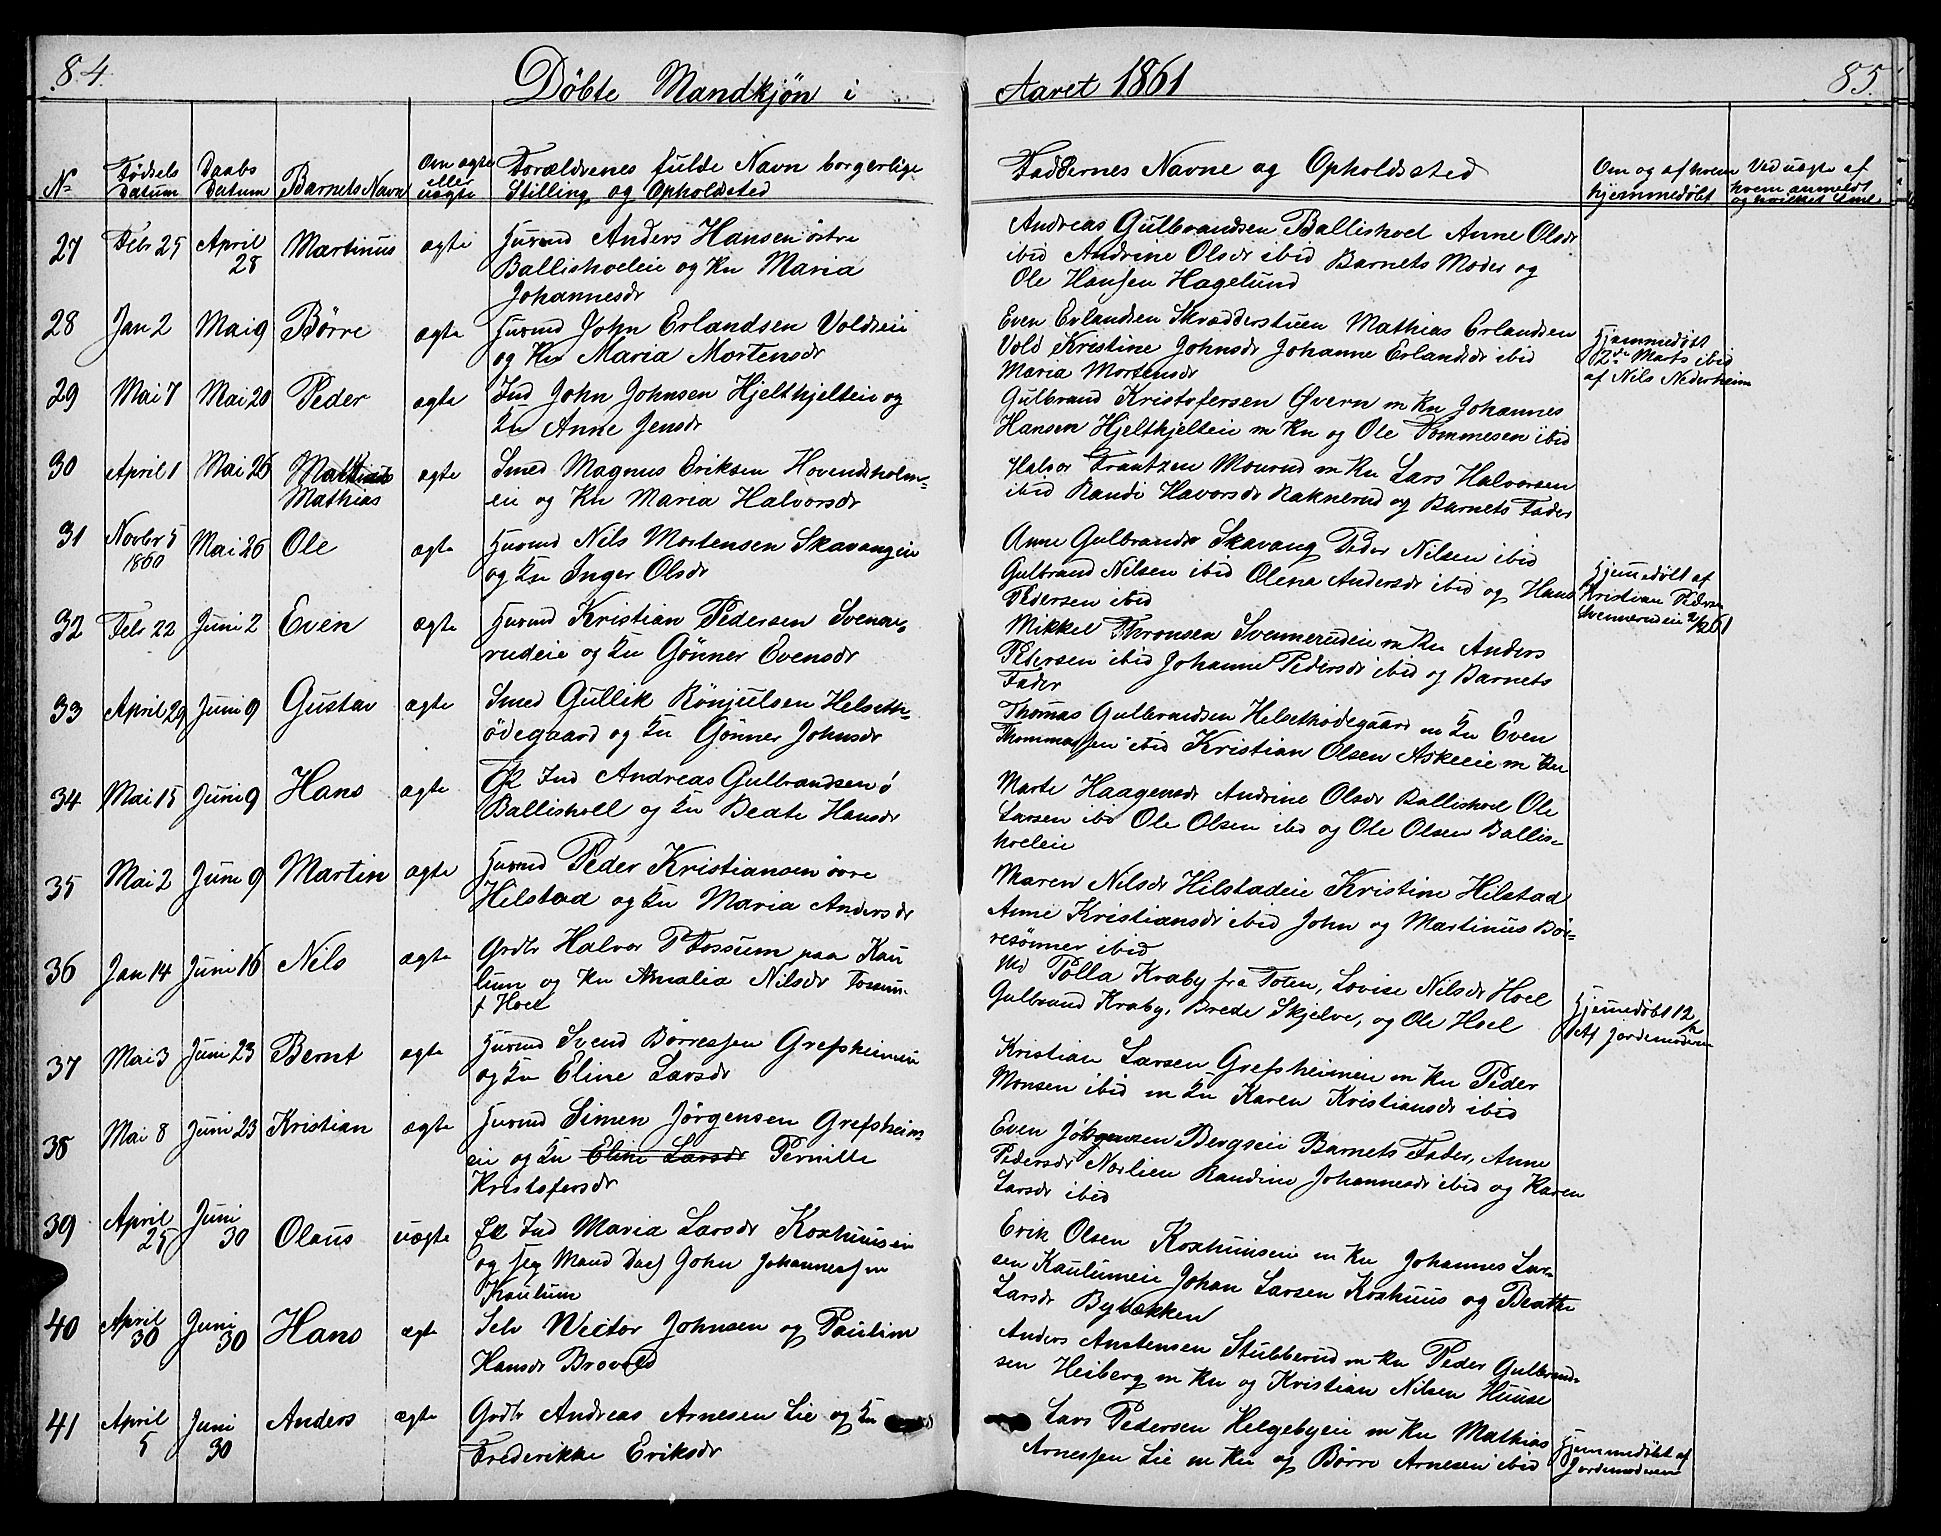 84. Döbte Mandkjön i Aaret 1861 85.
№ Fødsels Datum Daabs Datum Barnets Navn Om ægte eller uægte Forældrenes fulde Navn borgerlige Stilling og Opholdsted Faddernes Navne og Opholdssted Om og af hvem hjemmedøbt Ved uægte af hvem anmeldt og hvilket
27 Febr 25 April 28 Martinus ægte Husmd Anders Hansen östre
Ballishoeleie og Ku Maria
Johannesdr
Andreas Gulbrandsen Ballishoel Anne Olsdr
ibid Andrine Olsdr ibid Barnets Moder og
Ole Hansen Hagelund
28 Jan 2 Mai 9 Börre ægte Husmd John Erlandsen Voldseie
og Ku Maria Mortensdr
Even Erlandsen Skrædderstuen Mathias Erlandsen
Vold Kristine Johnsdr Johanne Erlandsdr ibid
Maria Mortensdr
Hjemmedöbt
2de Marts ibid
af Nils Nederheim
29 Mai 7 Mai 20 Peder ægte Ind John Johnsen Hjelthjelteie og
Ku Anne Jensdr
Gulbrand Kristofersen Øvern m Ku Johannes
Hansen Hjeltkjelteie m Ku og Ole Tommesen ibid
30 April 1 Mai 26 Mathias ægte Smed Magnus Eriksen Hovendsholm=
Mathias eie og Ku Maria Halvorsdr
Halvor Frantzen Mourud m Ku Lars Halvorsen
ibid Randi Havorsdr Raknerud og Barnets Fader
31 Novbr 5 1860 Mai 26 Ole ægte Husmd Nils Mortensen Skavangeie
og Ku Inger Olsdr
Anne Gulbrandsdr Skavang Peder Nilsen ibid
Gulbrand Nilsen ibid Olena Andersdr ibid og Hans
Pedersen ibid
32 Febr 22 Juni 2 Even ægte Husmd Kristian Pedersen Svenne=
rudeie og Ku Gönner Evensdr
Mikkel Thronsen Svennerudeie m Ku Anders
Pedersen ibid Johanne Pedersdr ibid og Barnets
Fader
Hjemmedöbt af
Kristian Peders
Svennerudeie
33 April 29 Juni 9 Gustav ægte Smed Gullik Rönjulsen Helseth=
ödegaard og Ku Gönner Johnsdr
Thomas Gulbrandsen Helsethödegaard m Ku Even
Thommassen ibid Kristian Olsen Askeeie m Ku
34 Mai 15 Juni 9 Hans ægte Ind Andreas Gulbrandsen ö
Ballishoell og Ku Beate Hansdr
Marte Haagensdr Andrine Olsdr Ballishoel Ole
Larsen ibd Ole Olsen ibid og Ole Olsen Ballis=
hoeleie
35 Mai 2 Juni 9 Martin ægte Husmd Peder Kristiansen övre
Hilstad og Ku Maria Andersdr
Maren Nilsdr Hilstadeie Kristine Hilstad
Anne Kristiansdr ibid John og Martinus Bör=
resönner ibid
36 Jan 14 Juni 16 Nils ægte Grdbr Halvor P Fossum paa Kau
lum og Ku Amalia Nilsdr Fossum
f Hoel
Md Polla Kraby fra Toten, Lovise Nilsdr Hoel
Gulbrand Kraby, Brede Skjelve, og Ole Hoel
Hjemedöbt
Af Jordemoderen
37 Mai 3 Juni 23 Bernt ægte Husmd Svend Börressen Grefsheimeie
og Ku Eline Larsdr
Kristian Larsen Grefsheimeie m Ku Peder
Monsen ibid m Ku Karen Kristiansdr ibid
38 Mai 8 Juni 23 Kristian ægte Husmd Simen Jörgensen Grefsheim=
eie og Ku Eline Larsdr Pernille
Kristofersdr
Even Jörgensen Bergseie Barnets Fader, Anne
Pedersdr Norlien Randine Johannesdr ibid og Karen
Larsdr ibid
39 April 25 Juni 30 Olaus uægte Ind Maria Larsdr Koxhuuseie
og Ug Mand John Johannessen
Kaulum
Erik Olsen Koxhuuseie m Ku Johannes Lar=
sen Kaulumeie Johan Larsen Koxhuus og Beathe
Larsdr Bybækken
40 April 30 Juni 30 Hans ægte Selv Wictor Johnsen og Pauline
Hansdr Brovold
Anders Anstensen Stubberud m Ku Peder Gulbrand=
sen Heiberg m Ku og Kristian Nilsen Huuse
41 April 5 Juni 30 Anders ægte Grdbr Andreas Arnesen Lie og Ku
Frederikke Eriksdr
Lars Pedersen Helgebyeie m Ku Mathias
Arnessen Lie m Ku og Börre Arnesen ibid
Hjemmedöbt af
Jordemoderen